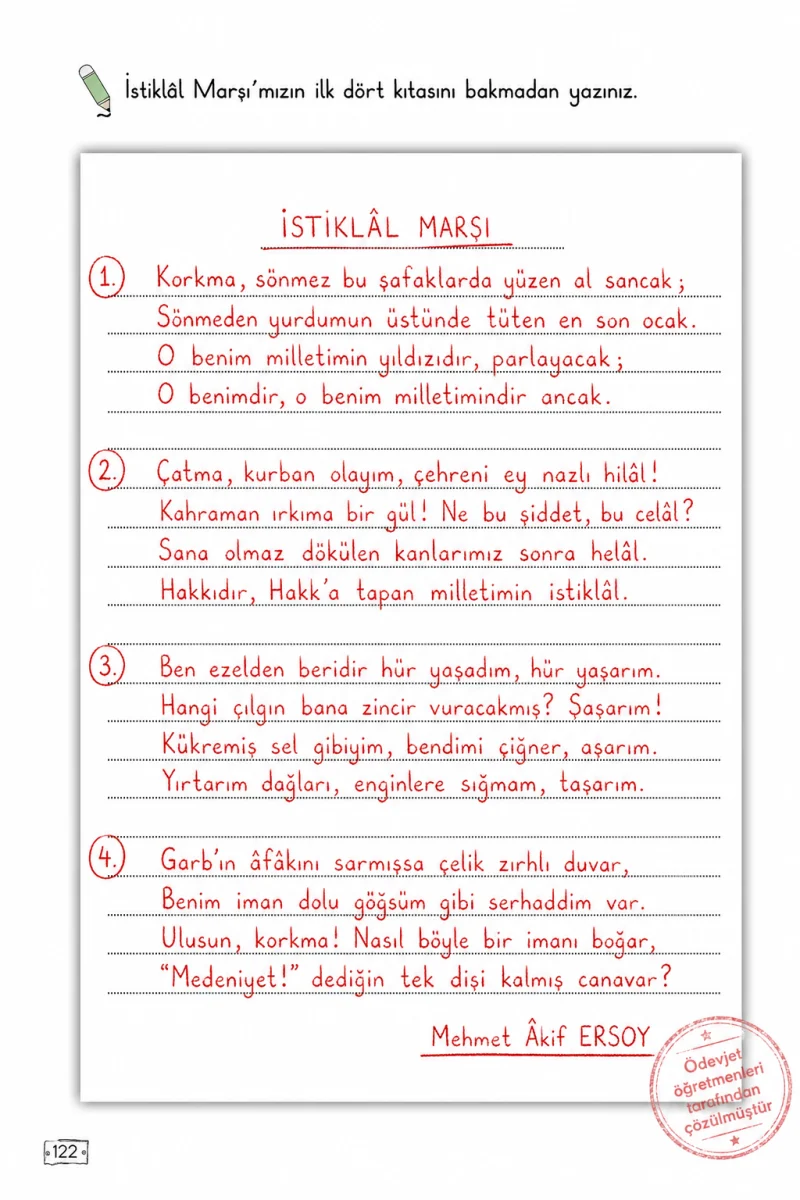 İstiklâl Marşı'mızın ilk dört kıtasını bakmadan yazınız.
İSTİKLÂL MARŞI
1. Korkma, sönmez bu şafaklarda yüzen al sancak;
Sönmeden yurdumun üstünde tüten en son ocak.
O benim milletimin yıldızıdır, parlayacak;
O benimdir, o benim milletimindir ancak.
2. Çatma, kurban olayım, çehreni ey nazlı hilâl!
Kahraman ırkıma bir gül! Ne bu şiddet, bu celâl?
Sana olmaz dökülen kanlarımız sonra helâl.
Hakkıdır, Hakk'a tapan milletimin istiklâl.
3. Ben ezelden beridir hür yaşadım, hür yaşarım.
Hangi çılgın bana zincir vuracakmış? Şaşarım!
Kükremiş sel gibiyim, bendimi çiğner, aşarım.
Yırtarım dağları, enginlere sığmam, taşarım.
4. Garb'ın âfâkını sarmışsa çelik zırhlı duvar,
Benim iman dolu göğsüm gibi serhaddim var.
Ulusun, korkma! Nasıl böyle bir imanı boğar,
“Medeniyet!” dediğin tek dişi kalmış canavar?
Mehmet Âkif ERSOY
Ödevjet
öğretmenleri
tarafından
çözülmüştür
122